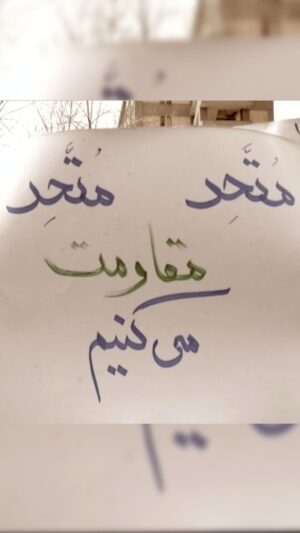 مُتَّحِد مُتَّحِد
مقاومت
می‌کنیم